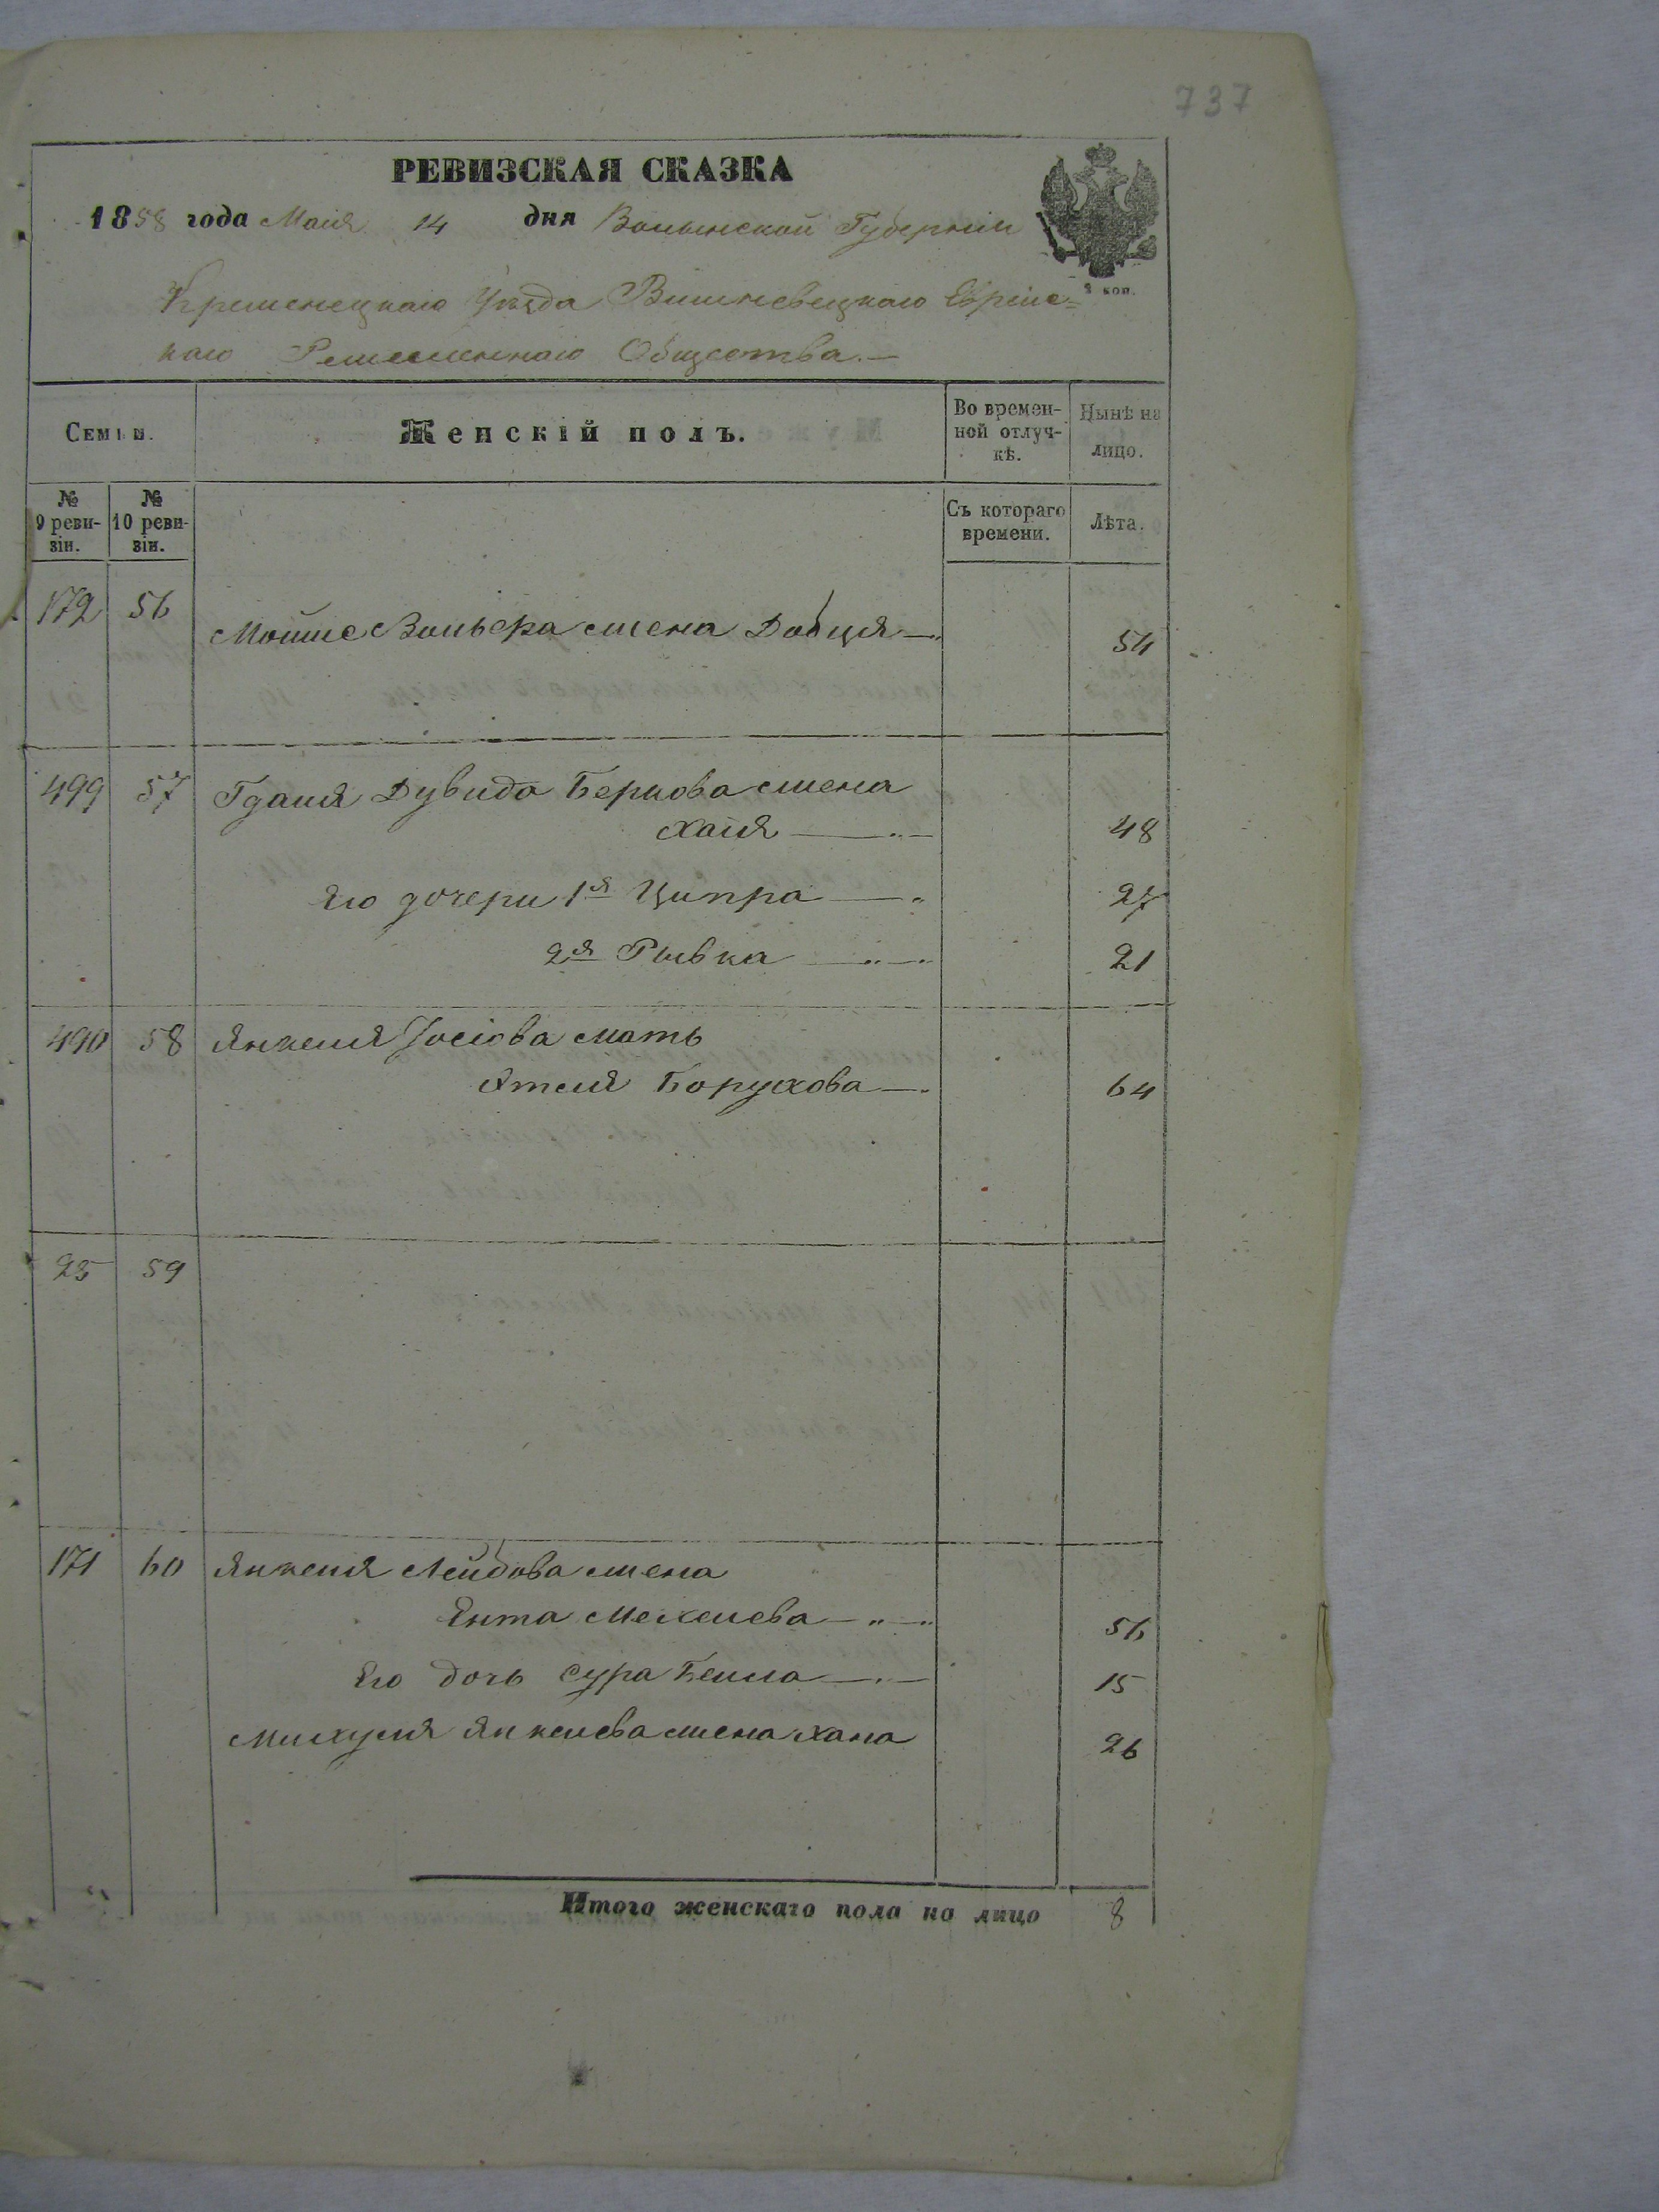 737
РЕВИЗСКАЯ СКАЗКА
1858 года Маія 14 дня Волынской Губерніи
3 коп.
Кременецкаго Уѣзда Вишневецкаго Еврейс=
каго Ремесленнаго Общества.—
Семьи. Женскій полъ. Во времен-ной отлуч-кѣ. Нынѣ на лицо.
№ 9 реви-зіи. № 10 реви-зіи. Съ котораго времени. Лѣта.
172 56 Мошке Вольфра жена Добця 54
499 57 Гдаля Дувида Беркова жена
Хаия 48
Его дочери 1я Ципра 27
2я Рывка 21
490 58 Янкеля Іосіова мать
Этля Борухова 64
25 59
171 60 Янкеля Лейбова жена
Ента Мехелева 56
Его дочь Сура Бейла 15
Михуля Янкелева жена Хана 26
Итого женскаго пола на лицо 8